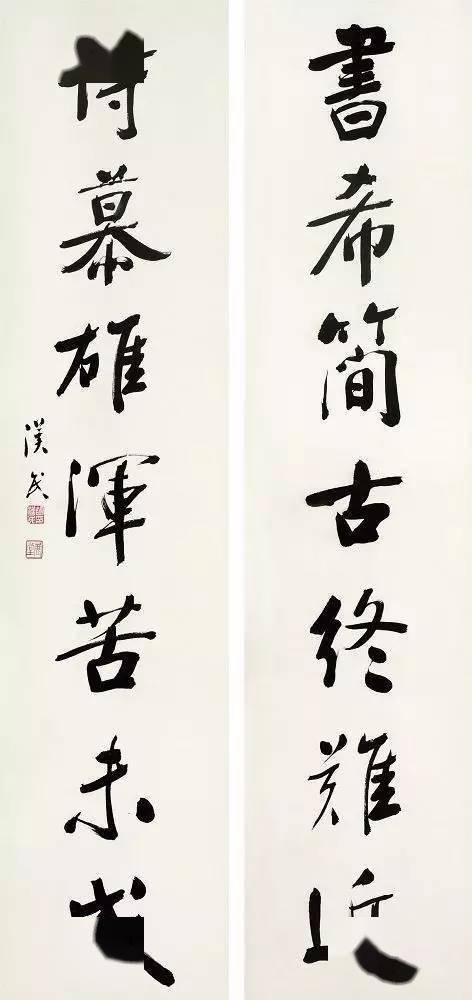 書希簡古終難
慕雄渾苦未
漢民